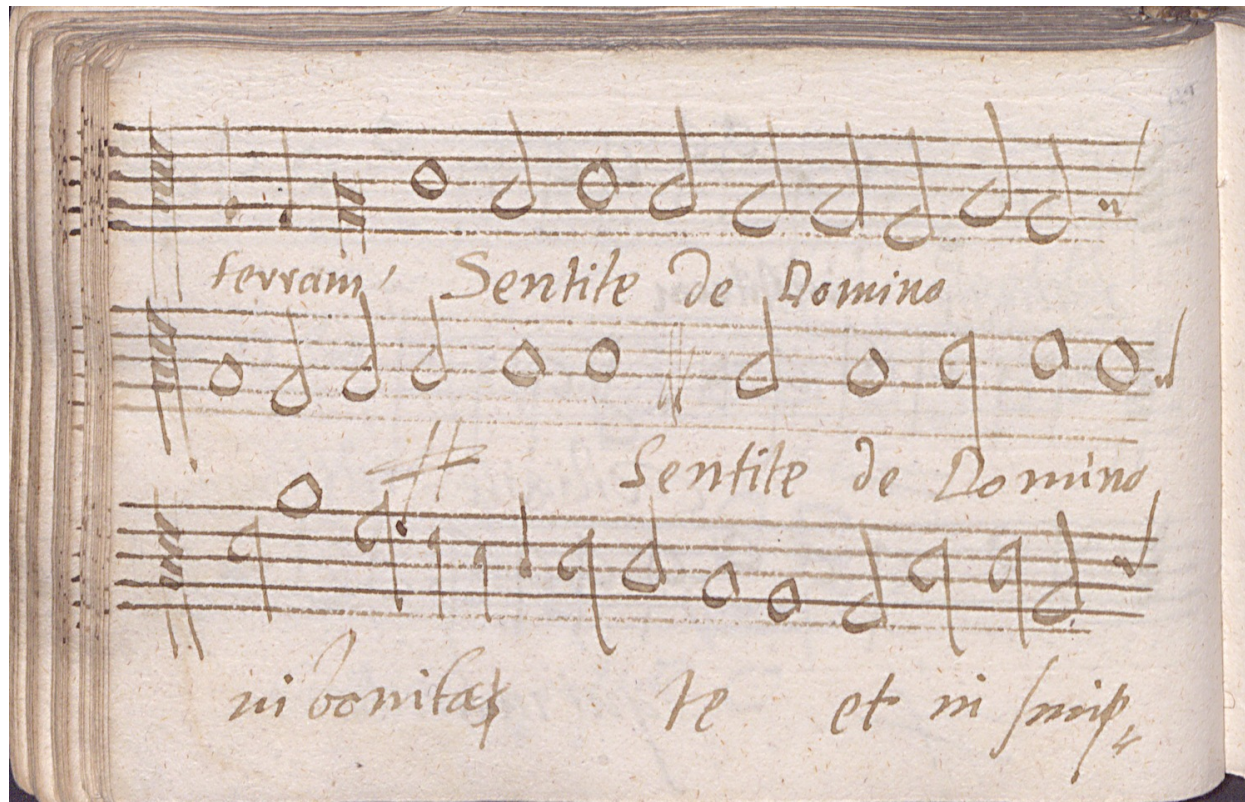 terram Sentite de Domino
Sentite de Domino
in bonita te et in simp